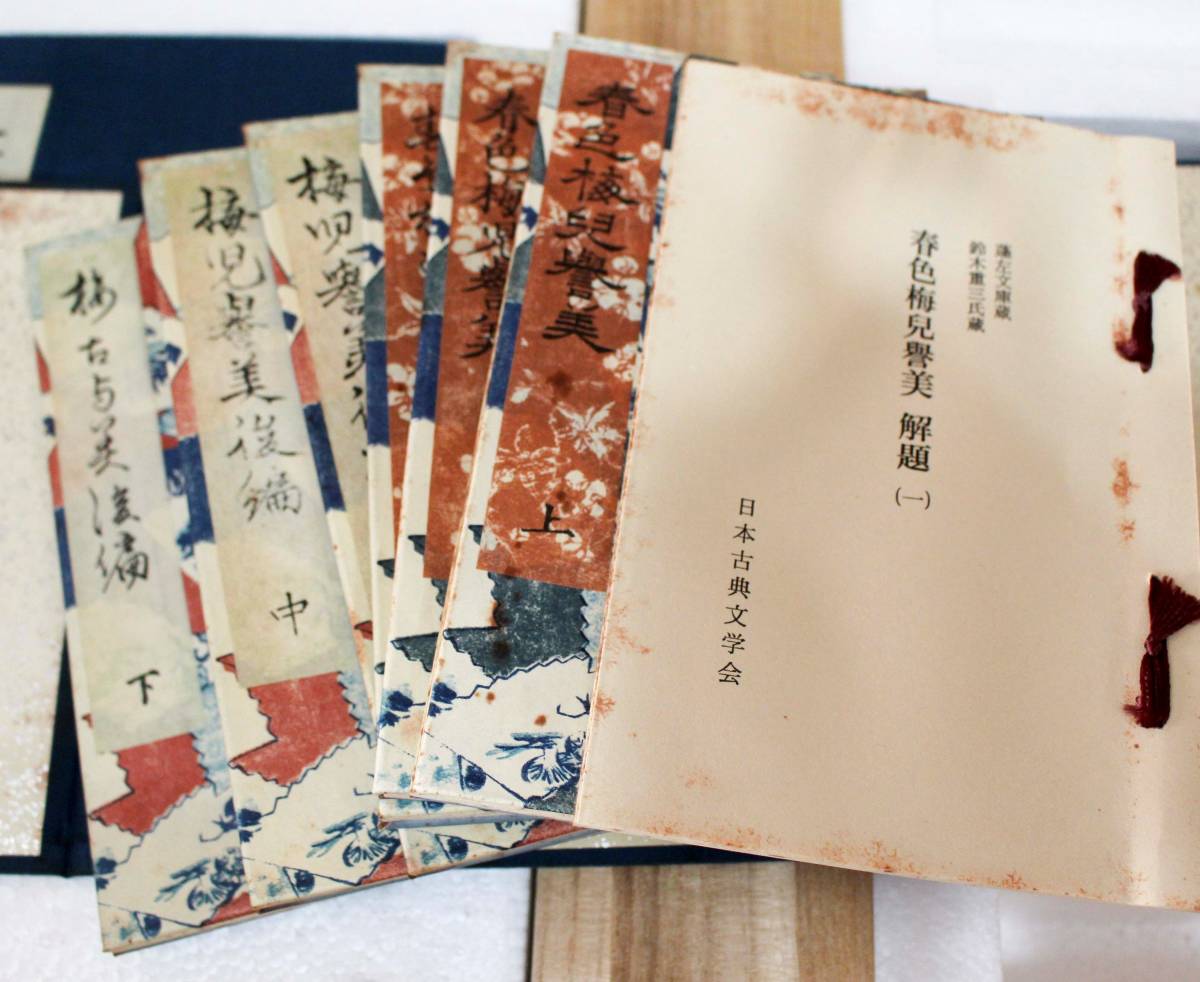 蓬左文庫蔵
鈴木重三氏蔵
春色梅兒譽美 解題 (一)
日本古典文学会
春色梅兒譽美
上
春色梅児譽美
梅児誉美後編
中
梅古与美後編
下